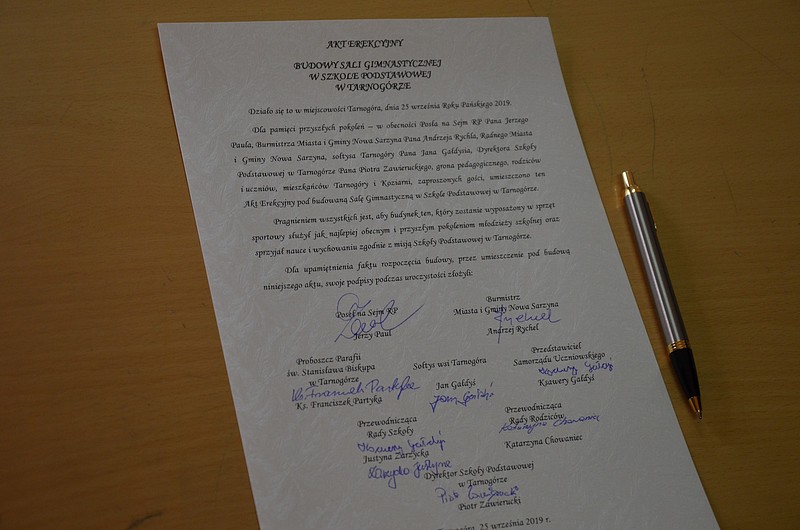 AKT EREKCYJNY
BUDOWY SALI GIMNASTYCZNEJ
W SZKOLE PODSTAWOWEJ
W TARNOGÓRZE
Działo się to w miejscowości Tarnogóra, dnia 25 września Roku Pańskiego 2019.
Dla pamięci przyszłych pokoleń – w obecności Posła na Sejm RP Pana Jerzego
Paula, Burmistrza Miasta i Gminy Nowa Sarzyna Pana Andrzeja Rychla, Radnego Miasta
i Gminy Nowa Sarzyna, sołtysa Tarnogóry Pana Jana Gałdysia, Dyrektora Szkoły
Podstawowej w Tarnogórze Pana Piotra Zawieruckiego, grona pedagogicznego, rodziców
i uczniów, mieszkańców Tarnogóry i Koziarni, zaproszonych gości, umieszczono ten
Akt Erekcyjny pod budowaną Salę Gimnastyczną w Szkole Podstawowej w Tarnogórze.
Pragnieniem wszystkich jest, aby budynek ten, który zostanie wyposażony w sprzęt
sportowy służył jak najlepiej obecnym i przyszłym pokoleniom młodzieży szkolnej oraz
sprzyjał nauce i wychowaniu zgodnie z misją Szkoły Podstawowej w Tarnogórze.
Dla upamiętnienia faktu rozpoczęcia budowy, przez umieszczenie pod budową
niniejszego aktu, swoje podpisy podczas uroczystości złożyli:
Poseł na Sejm RP
Jerzy Paul
Burmistrz
Miasta i Gminy Nowa Sarzyna
Rychel
Andrzej Rychel
Proboszcz Parafii
św. Stanisława Biskupa
w Tarnogórze
Ks. Franciszek Partyka
Ks. Franciszek Partyka
Sołtys wsi Tarnogóra
Jan Gałdyś
Jan Gałdyś
Przedstawiciel
Samorządu Uczniowskiego
Ksawery Gałdyś
Ksawery Gałdyś
Przewodnicząca
Rady Szkoły
Ksawery Gałdyś
Justyna Zarzycka
Zarzycka Justyna
Przewodnicząca
Rady Rodziców
Katarzyna Chowaniec
Katarzyna Chowaniec
Dyrektor Szkoły Podstawowej
w Tarnogórze
Piotr Zawierucki
Piotr Zawierucki
25 września 2019 r.